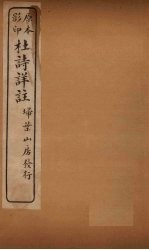 原本
影印
杜詩詳註
埽葉山房發行